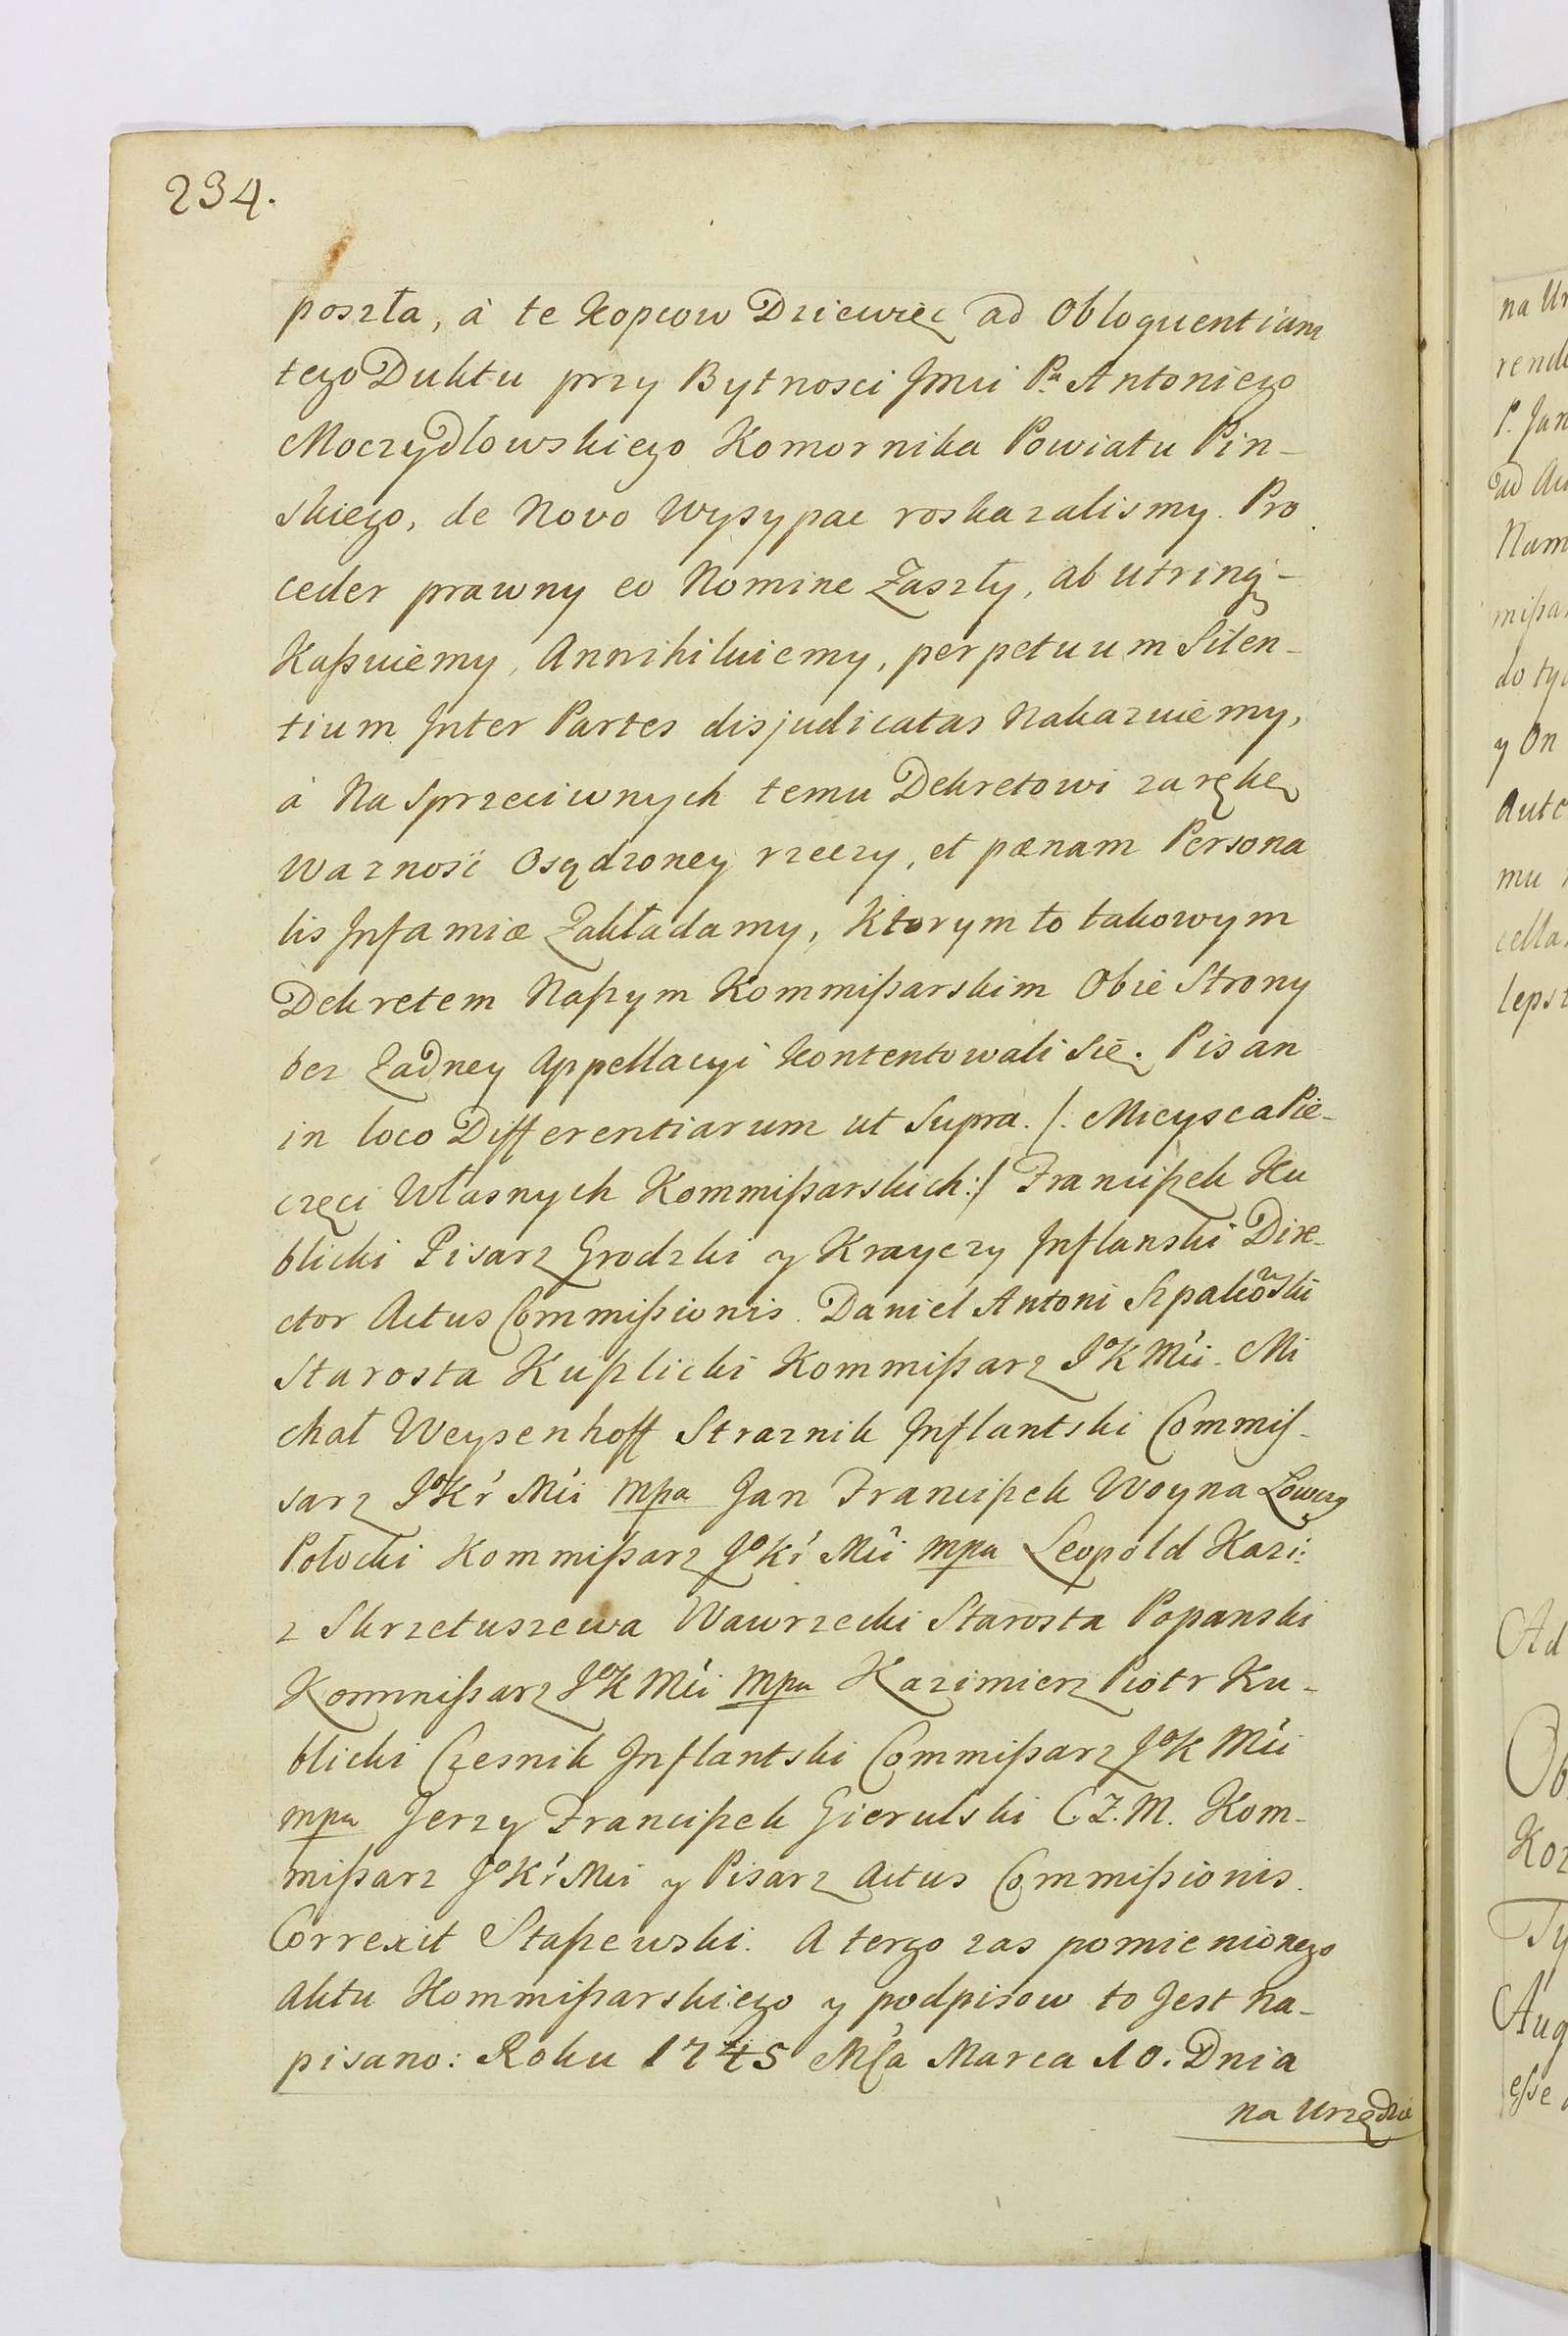 234.
poszła, à te Kopcow Dziewięc ad Obloquentiam
tego Duktu przy Bytnosci Jmći Pa Antoniego
Moczydłowskiego Komornika Powiatu Pin-
skiego, de Novo Wysypac roskazalismy. Pro
ceder prawny eo Nomine Zaszły, ab utrinq-
Kaſsuiemy, Annihiluiemy, perpetuum Silen-
tium Inter Partes disjudicatas Nakazuiemy,
à Na Sprzeciwnych temu Dekretowi zarękę
Waznosć Osądzoney rzeczy, et pænam Persona
lis Infamiæ Zakładamy, Ktorym to takowym
Dekretem Naſzym Kommiſsarskim Obie Strony
bez Zadney Appellacyi Kontentowali Się. Pisan
in loco Differentiarum ut Supra. /: Mieysca Pie-
częci Własnych Kommiſsarskich:/ Franciſzek Ku
blicki Pisarz Grodzki y Krayczy Inflanski Dire-
ctor Actus Commiſsionis. Daniel Antoni Szpakowski
Starosta Kuſzlicki Kommiſsarz JoK Mći. Mi
chał Weysenhoff Straznik Inflantski Commiſ-
sarz JoKr Mći mpa Jan Franciſzek Woyna Łowczy
Połocki Kommiſsarz JoKr Mći mpa Leopold Kazi:
z Skrzetuszewa Wawrzecki Starosta Popanski
Kommiſsarz JoK Mći mpa Kazimierz Piotr Ku-
blicki Czesnik Inflantski Commiſsarz JoK Mći
mpa Jerzy Franciſzek Gierulski C.Z.M. Kom-
miſsarz JoKr Mći y Pisarz Actus Commiſsionis.
Correxit Staſzewski. A tergo zas pomienionego
Aktu Kommiſsarskiego y podpisow to Jest na-
pisano: Roku 1745 Mſca Marca 10. Dnia
na Urzędzie